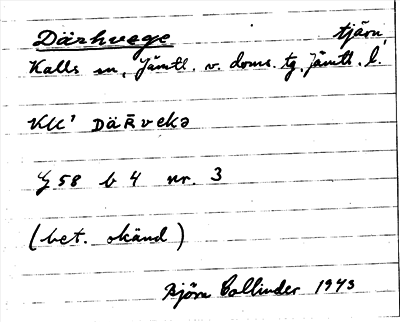 Därhvege tjärn
Kalls sn, Jämtl. v. doms. tg, Jämtl. l.
KU' DäR̄vekə
G 58 b 4 nr. 3
(bet. okänd)
Björn Collinder 1943